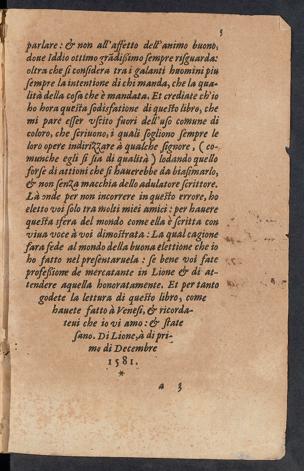 5
parlare: & non all'affetto dell'animo buono,
doue Iddio ottimo grādissimo sempre risguarda:
oltra che si considera tra i galanti huomini piu
sempre la intentione di chi manda, che la qua-
lità della cosa che è mandata. Et crediate ch'io
ho hora questa sodisfatione di questo libro, che
mi pare esser vscito fuori dell'uso comune di
coloro, che scriuono, i quali sogliono sempre le
loro opere indirizzare à qualche signore, (co-
munche egli si sia di qualità) lodando quello
forse di attioni che si hauerebbe da biasimarlo,
& non senza macchia dello adulatore scrittore.
Là onde per non incorrere in questo errore, ho
eletto voi solo tra molti miei amici: per hauere
questa sfera del mondo come ella è scritta con
viua voce à voi dimostrata: La qual cagione
fara fede al mondo della buona elettione che io
ho fatto nel presentaruela: se bene voi fate
professione de mercatante in Lione & di at-
tendere aquella honoratamente. Et per tanto
godete la lettura di questo libro, come
hauete fatto à Venesi, & ricorda-
teui che io vi amo: & state
sano. Di Lione, à di pri-
mo di Decembre
1581.
*
a 3